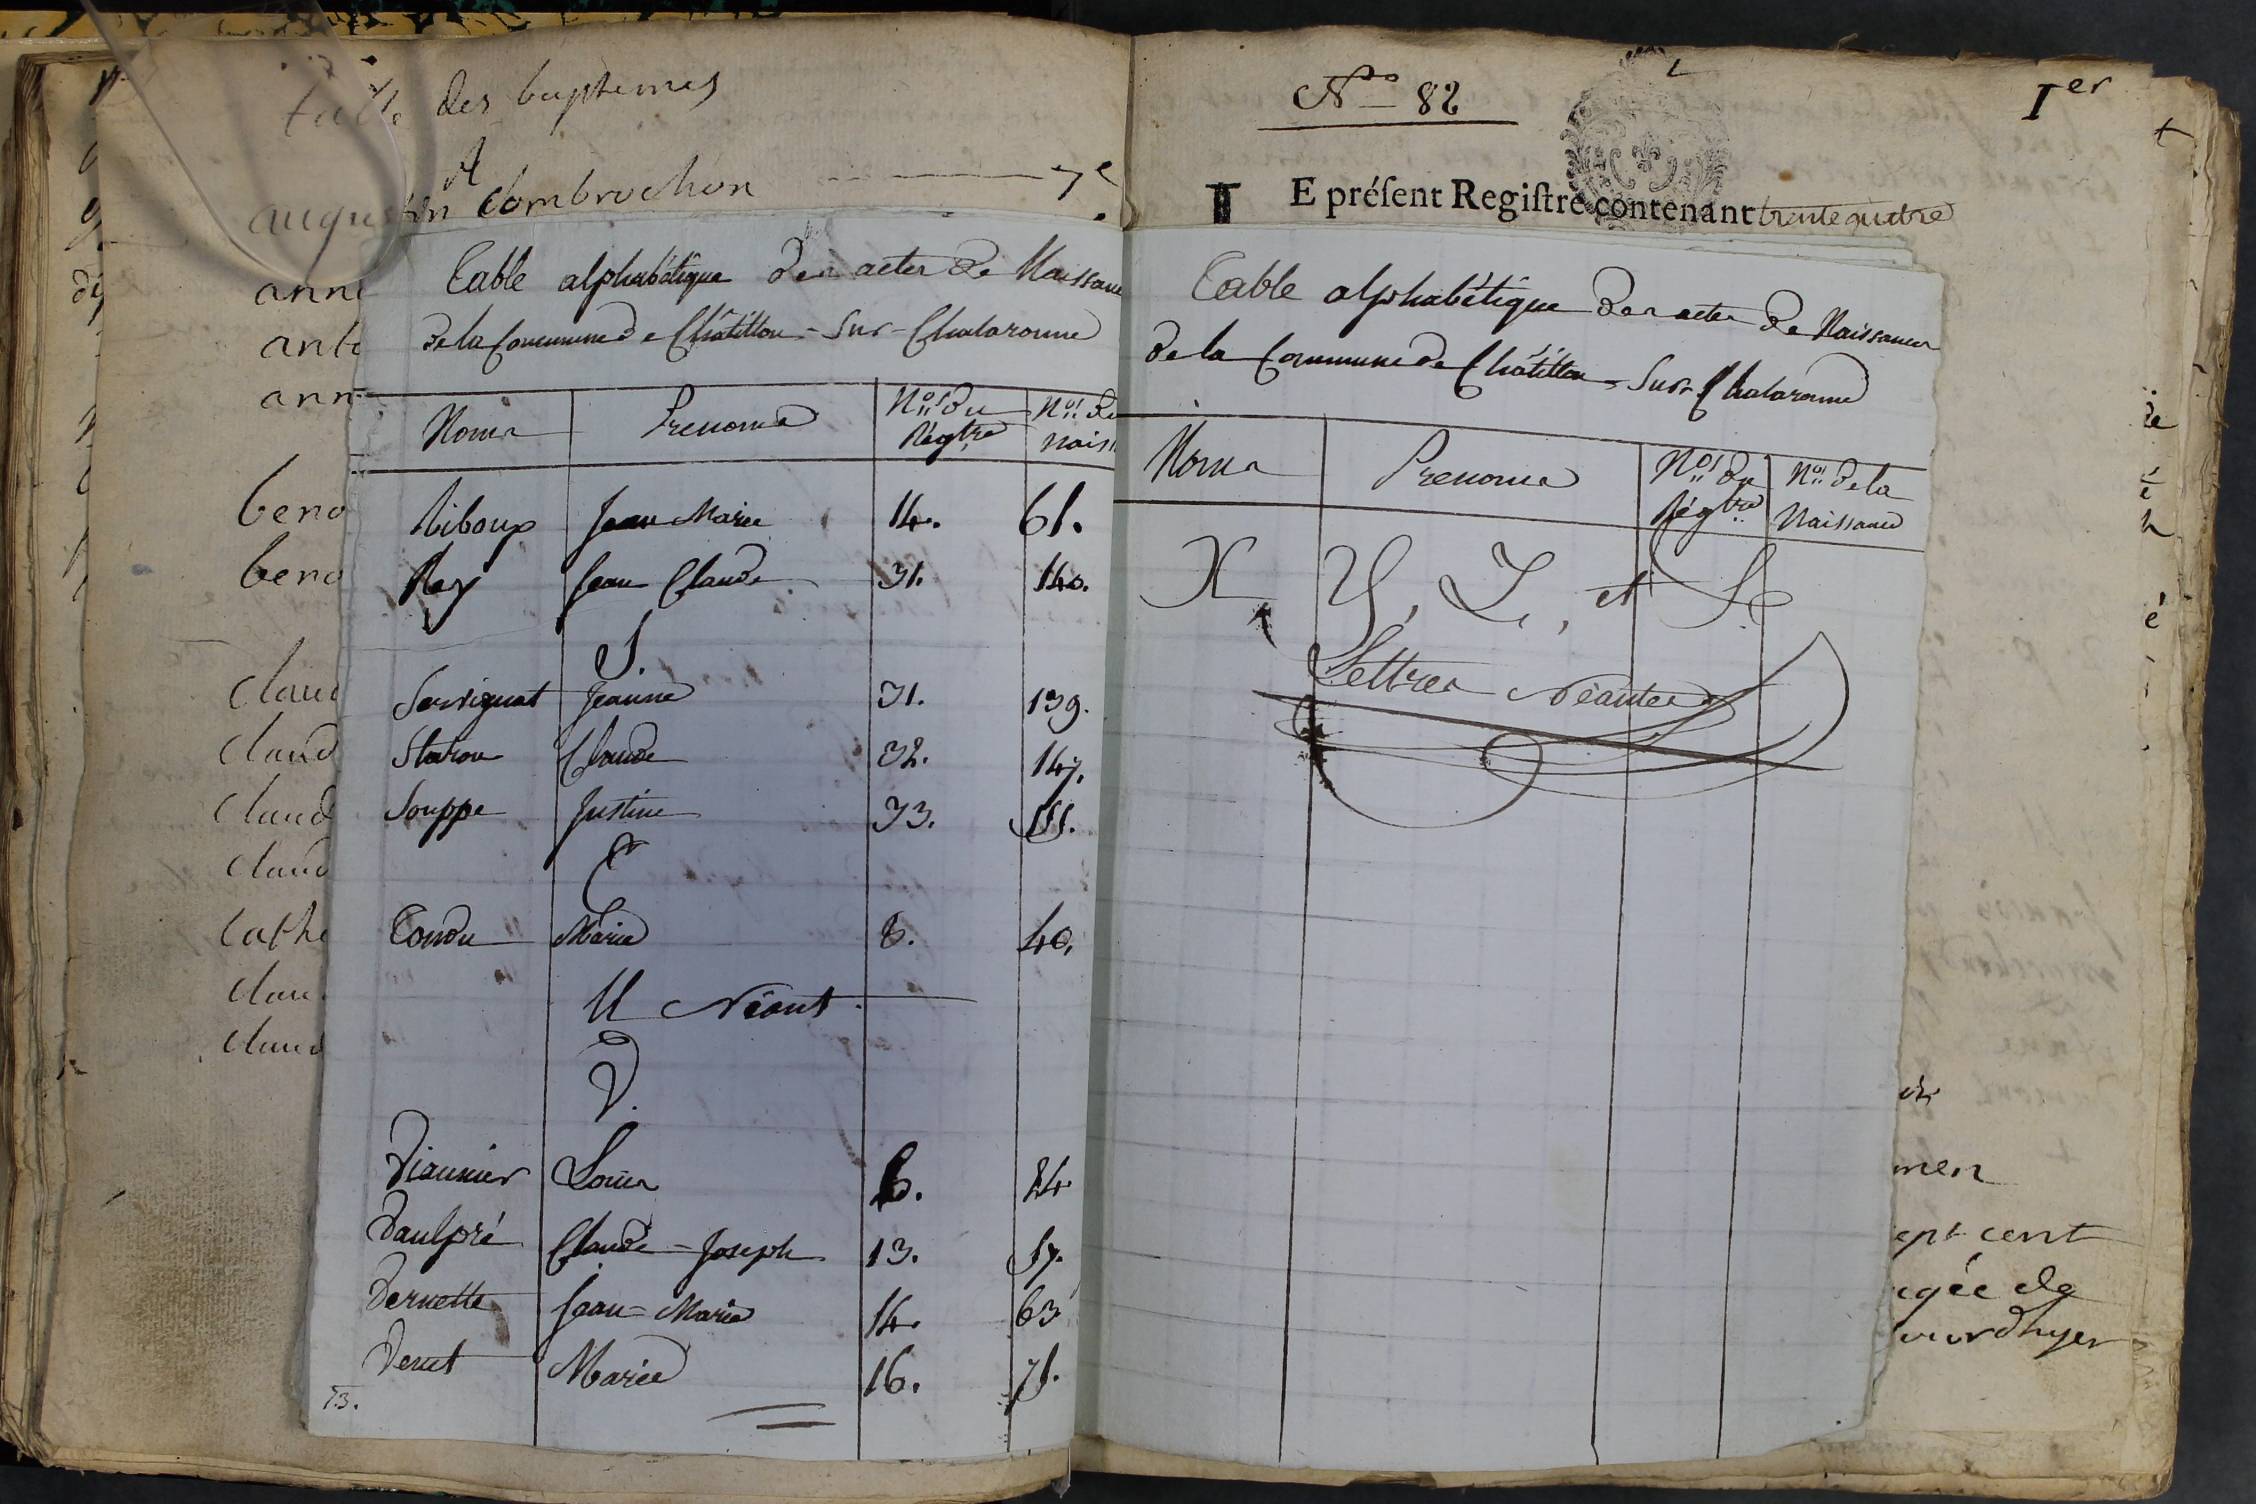 table des baptemes
A
augustin Combrochon 7e
ann
ant
ann
beno
beno
claud
claud
claud
claud
cathe
clau
claud
Table alphabétique des actes de Naissance
de la Commune de Châtillon-Sur-Chalaronne
Noms Prenoms Nos. du Régtre Nos. de Naiss
Riboux Jean Marie 14. 61.
Rey Jean Claude 31. 140.
S.
Servignat Jeanne 31. 139.
Claude 32. 147.
Souppe Justine 33. 151.
T
Tondu Marie 8. 40.
U Néant.
V.
Viannier Louis 6. 24.
Vaulpré Claude-Joseph 13. 57.
Vernette Jean-Marie 14. 63
Venet Marie 16. 71.
73.
No 82
Ier
LE préſent Regiſtre contenant trente quatre
Table alphabétique des actes de Naissances
de la Commune de Châtillon-Sur-Chalaronne
Noms Prenoms Nos. du Régtre Nos. de la Naissance
X, Y, Z, et &
Lettres Néantes
men
ept cent
gée de
ourdhyer